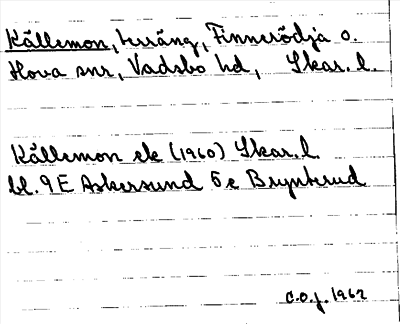 Källemon, terräng, Finnerödja o.
Hova snr, Vadsbo hd, Skar. l.
Källemon ek (1960) Skar. l.
bl. 9E Askersund 5e Brynterud
C.O.J. 1962